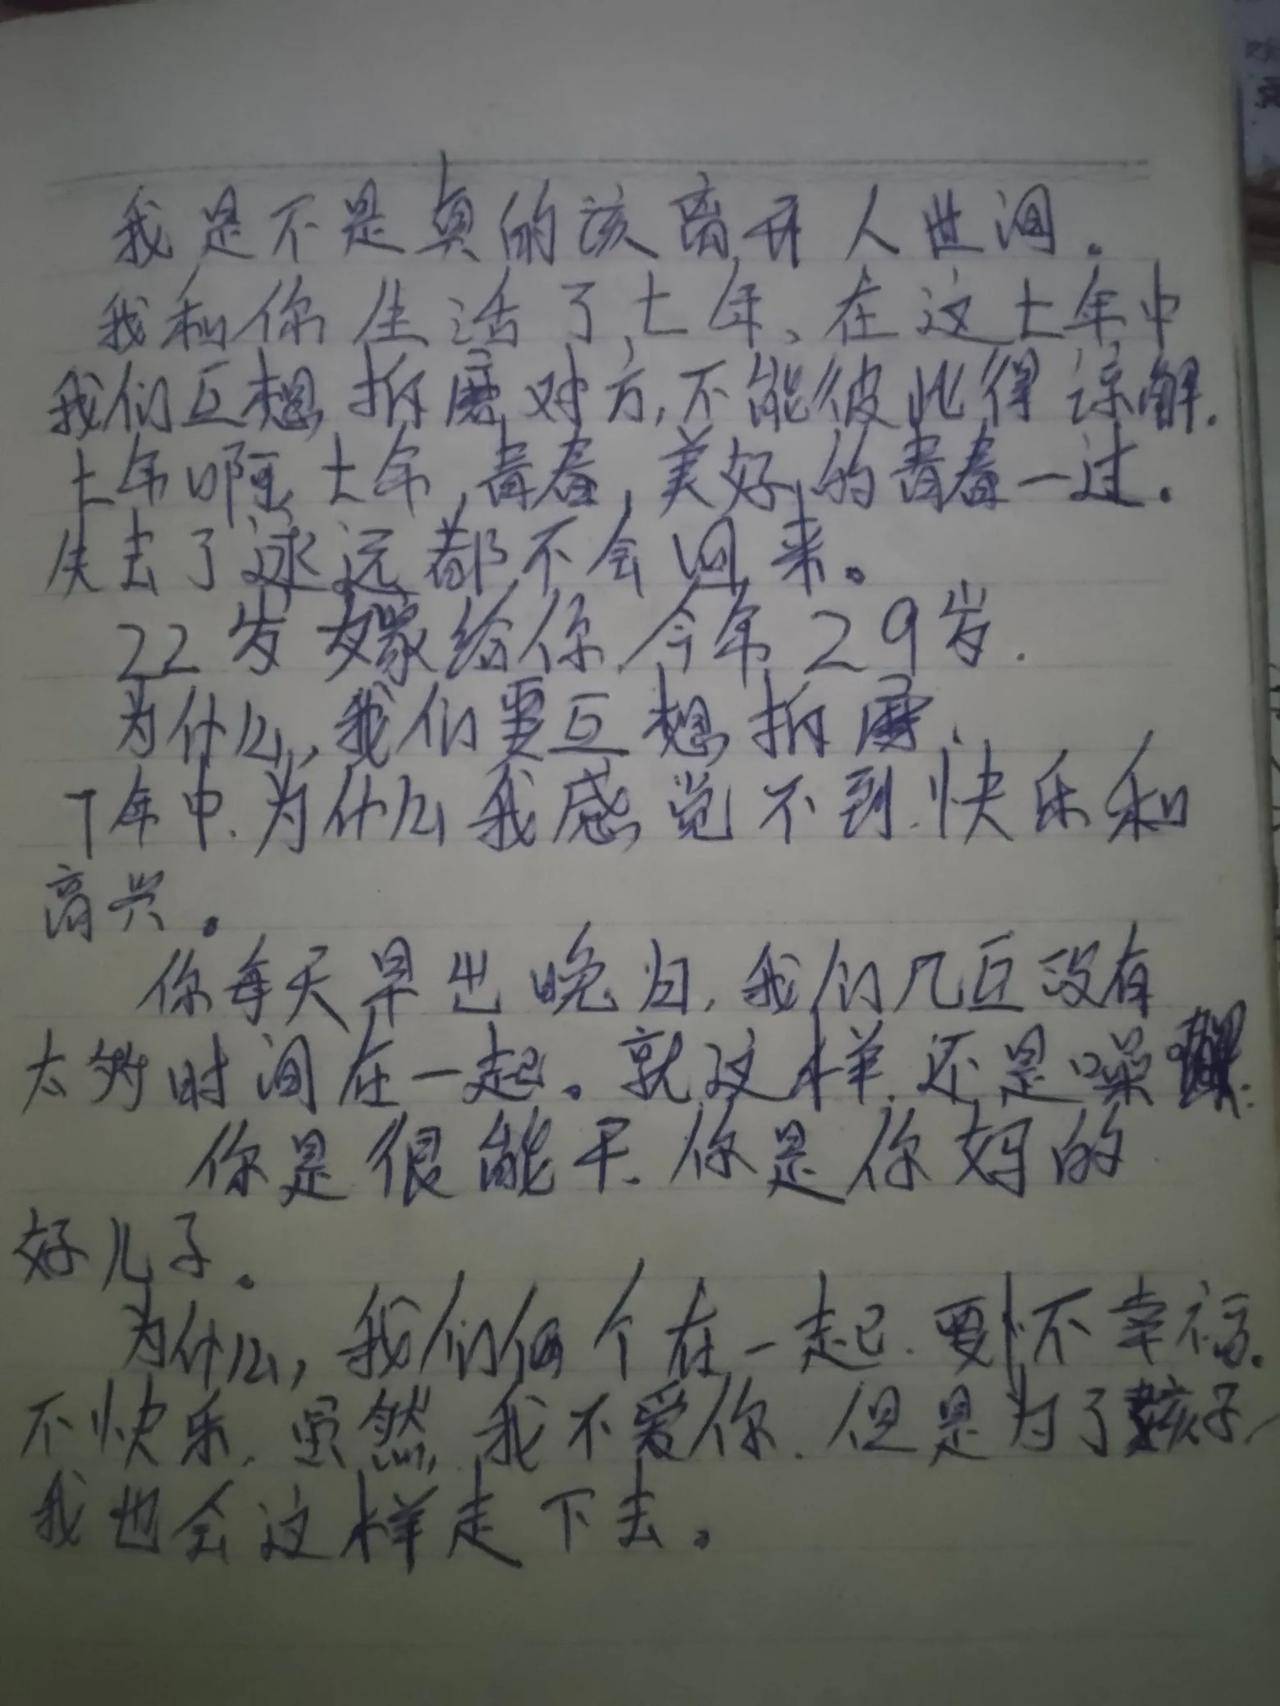 我是不是真的该离开人世间。
我和你生活了七年、在这七年中
我们互想折磨对方,不能彼此得谅解.
七年啊七年,青春,美好的青春一过.
失去了永远都不会回来。
22岁嫁给你.今年29岁.
为什么,我们要互想折磨.
7年中.为什么我感觉不到.快乐和
高兴。
你每天早出晚归,我们几互没有
太多时间在一起。就这样.还是噪
你是很能干.你是你妈的
好儿子。
为什么,我们俩个在一起.要怀幸福.
不快乐.虽然.我不爱你.但是为了孩子,
我也会这样走下去。